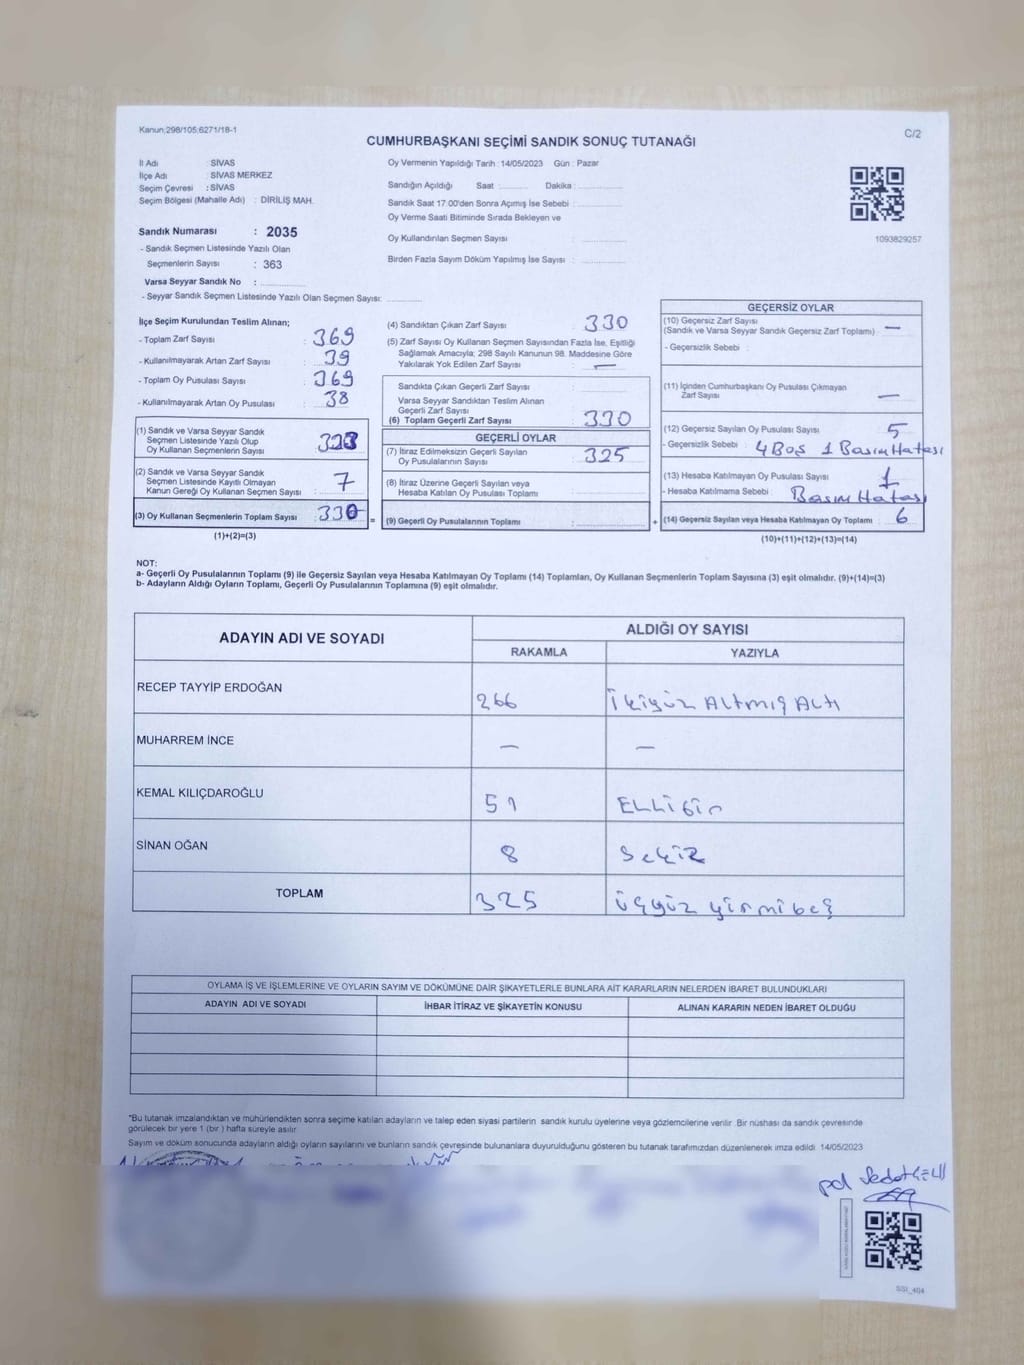 Kanun;298/105;6271/18-1
C/2
CUMHURBAŞKANI SEÇİMİ SANDIK SONUÇ TUTANAĞI
İl Adı : SİVAS
İlçe Adı : SİVAS MERKEZ
Seçim Çevresi : SİVAS
Seçim Bölgesi (Mahalle Adı) : DİRİLİŞ MAH.
Sandık Numarası : 2035
- Sandık Seçmen Listesinde Yazılı Olan
Seçmenlerin Sayısı : 363
Varsa Seyyar Sandık No : ..............
- Seyyar Sandık Seçmen Listesinde Yazılı Olan Seçmen Sayısı: ............
Oy Vermenin Yapıldığı Tarih : 14/05/2023 Gün : Pazar
Sandığın Açıldığı Saat :......... Dakika :..............
Sandık Saat 17:00'den Sonra Açımış İse Sebebi :..............
Oy Verme Saati Bitiminde Sırada Bekleyen ve
Oy Kullandırılan Seçmen Sayısı : ..............
Birden Fazla Sayım Döküm Yapılmış İse Sayısı : ..............
1093829257
İlçe Seçim Kurulundan Teslim Alınan;
- Toplam Zarf Sayısı : 369
- Kullanılmayarak Artan Zarf Sayısı : 39
- Toplam Oy Pusulası Sayısı : 369
- Kullanılmayarak Artan Oy Pusulası : 38
(1) Sandık ve Varsa Seyyar Sandık
Seçmen Listesinde Yazılı Olup
Oy Kullanan Seçmenlerin Sayısı : 323
(2) Sandık ve Varsa Seyyar Sandık
Seçmen Listesinde Kayıtlı Olmayan
Kanun Gereği Oy Kullanan Seçmen Sayısı : 7
(3) Oy Kullanan Seçmenlerin Toplam Sayısı : 330 =
(1)+(2)=(3)
(4) Sandıktan Çıkan Zarf Sayısı : 330
(5) Zarf Sayısı Oy Kullanan Seçmen Sayısından Fazla İse, Eşitliği
Sağlamak Amacıyla; 298 Sayılı Kanunun 98. Maddesine Göre
Yakılarak Yok Edilen Zarf Sayısı : —
Sandıkta Çıkan Geçerli Zarf Sayısı :
Varsa Seyyar Sandıktan Teslim Alınan
Geçerli Zarf Sayısı :
(6) Toplam Geçerli Zarf Sayısı : 330
GEÇERLİ OYLAR
(7) İtiraz Edilmeksizin Geçerli Sayılan
Oy Pusulalarının Sayısı : 325
(8) İtiraz Üzerine Geçerli Sayılan veya
Hesaba Katılan Oy Pusulası Toplamı :
(9) Geçerli Oy Pusulalarının Toplamı : +
GEÇERSİZ OYLAR
(10) Geçersiz Zarf Sayısı
(Sandık ve Varsa Seyyar Sandık Geçersiz Zarf Toplamı) : —
- Geçersizlik Sebebi :
(11) İçinden Cumhurbaşkanı Oy Pusulası Çıkmayan
Zarf Sayısı : —
(12) Geçersiz Sayılan Oy Pusulası Sayısı : 5
- Geçersizlik Sebebi : 4 Boş 1 Basım Hatası
(13) Hesaba Katılmayan Oy Pusulası Sayısı : 1
- Hesaba Katılmama Sebebi : Basım Hatası
(14) Geçersiz Sayılan veya Hesaba Katılmayan Oy Toplamı : 6
(10)+(11)+(12)+(13)=(14)
NOT:
a- Geçerli Oy Pusulalarının Toplamı (9) ile Geçersiz Sayılan veya Hesaba Katılmayan Oy Toplamı (14) Toplamları, Oy Kullanan Seçmenlerin Toplam Sayısına (3) eşit olmalıdır. (9)+(14)=(3)
b- Adayların Aldığı Oyların Toplamı, Geçerli Oy Pusulalarının Toplamına (9) eşit olmalıdır.
ADAYIN ADI VE SOYADI ALDIĞI OY SAYISI
RAKAMLA YAZIYLA
RECEP TAYYİP ERDOĞAN 266 ikiyüz Altmış Altı
MUHARREM İNCE — —
KEMAL KILIÇDAROĞLU 51 ELLİ bir
SİNAN OĞAN 8 Sekiz
TOPLAM 325 üçyüz yirmi beş
OYLAMA İŞ VE İŞLEMLERİNE VE OYLARIN SAYIM VE DÖKÜMÜNE DAİR ŞİKAYETLERLE BUNLARA AİT KARARLARIN NELERDEN İBARET BULUNDUKLARI
ADAYIN ADI VE SOYADI İHBAR İTİRAZ VE ŞİKAYETİN KONUSU ALINAN KARARIN NEDEN İBARET OLDUĞU
"Bu tutanak imzalandıktan ve mühürlendikten sonra seçime katılan adayların ve talep eden siyasi partilerin sandık kurulu üyelerine veya gözlemcilerine verilir. Bir nüshası da sandık çevresinde
görülecek bir yere 1 (bir ) hafta süreyle asılır.
Sayım ve döküm sonucunda adayların aldığı oyların sayılarını ve bunların sandık çevresinde bulunanlara duyurulduğunu gösteren bu tutanak tarafımızdan düzenlenerek imza edildi. 14/05/2023
SSI_404